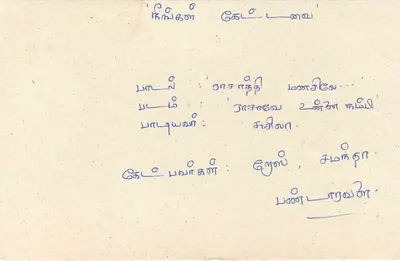 'நீங்கள் கேட்டவை'
பாடல் : ராசாத்தி மனசிலே...
படம் : 'ராசாவே உன்ன நம்பி'
பாடியவர் : சுசிலா.
கேட்பவர்கள் : றேஸ், சமந்தா.
பண்டாரவன்.